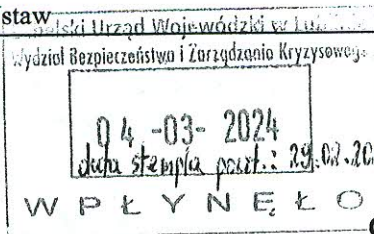 staw
Urząd Wojewódzki w
Wydział Bezpieczeństwa i Zarządzania Kryzysowego
04 -03- 2024
data stempla poczt.: 29.02.20
WPŁYNĘŁO